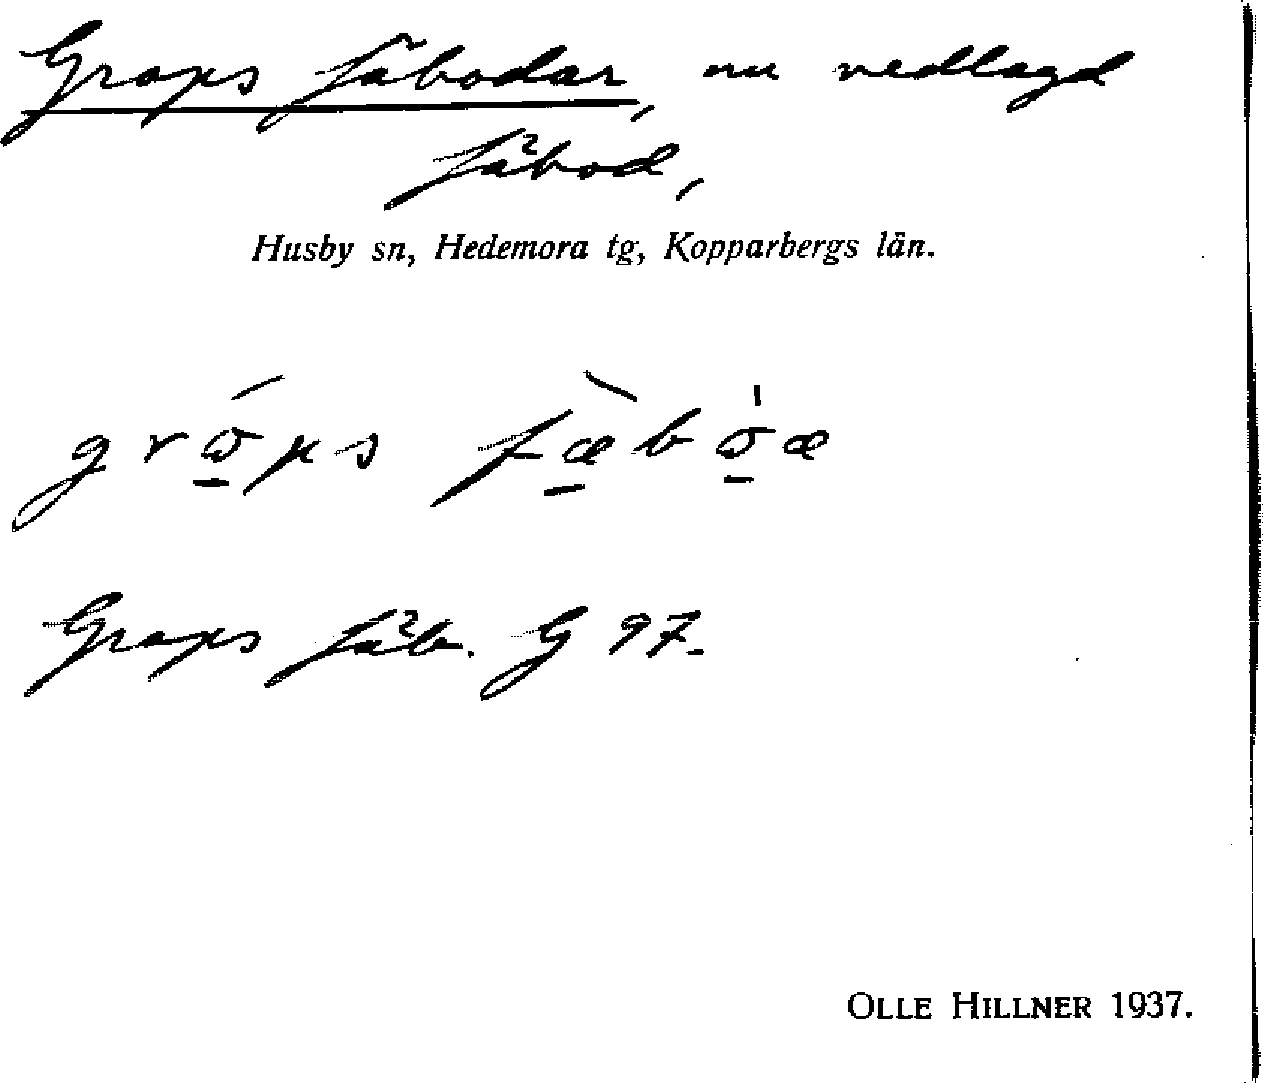 Graps fäbodar, nu nedlagd
fäbod,
Husby sn, Hedemora tg, Kopparbergs län.
Graps fäb. G 97.
OLLE HILLNER 1937.